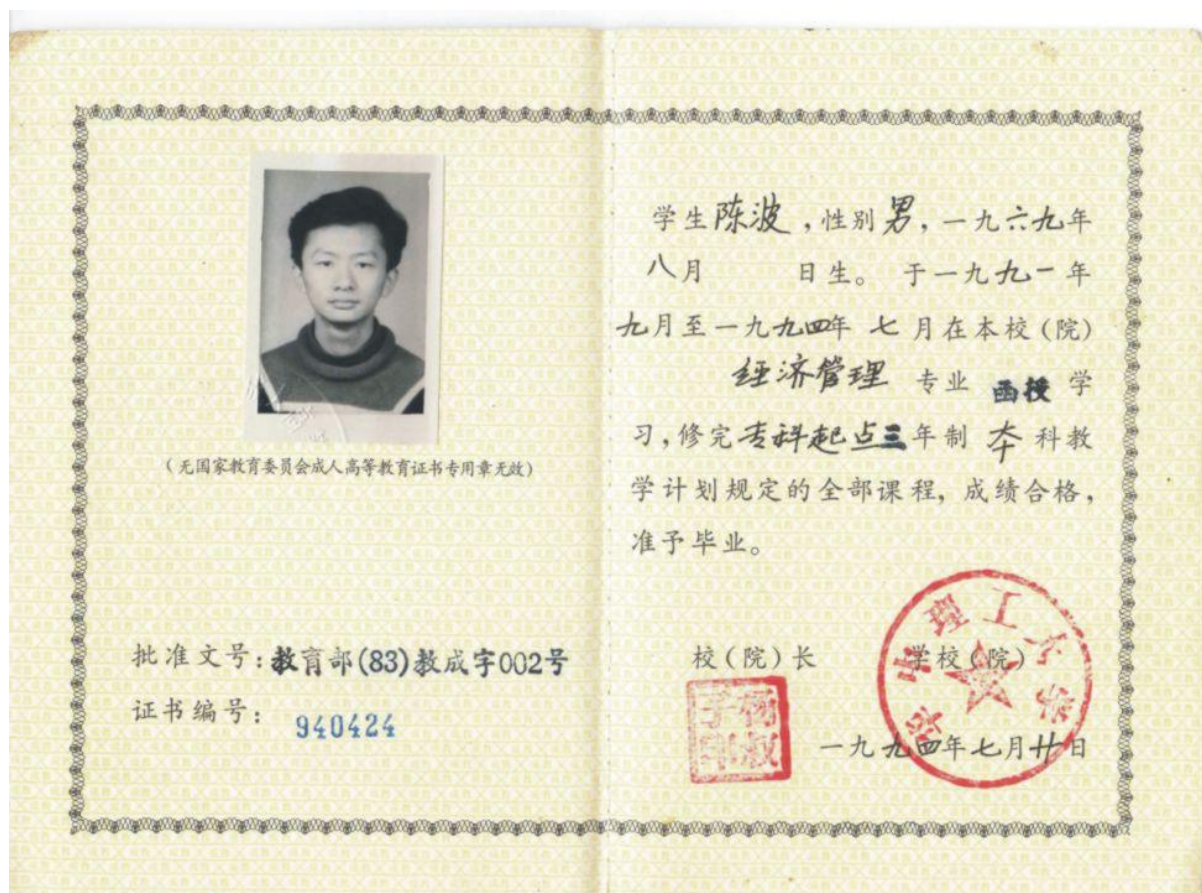 (无国家教育委员会成人高等教育证书专用章无效)
批准文号:教育部(83)教成字002号
证书编号: 940424
学生陈波,性别男,一九六九年
八月 日生。于一九九一年
九月至一九九四年 七月在本校(院)
经济管理 专业 函授 学
习,修完专科起点三年制 本 科教
学计划规定的全部课程,成绩合格,
准予毕业。
校(院)长 学校(院)
华中理工大学
杨叔子印
一九九四年七月廿日